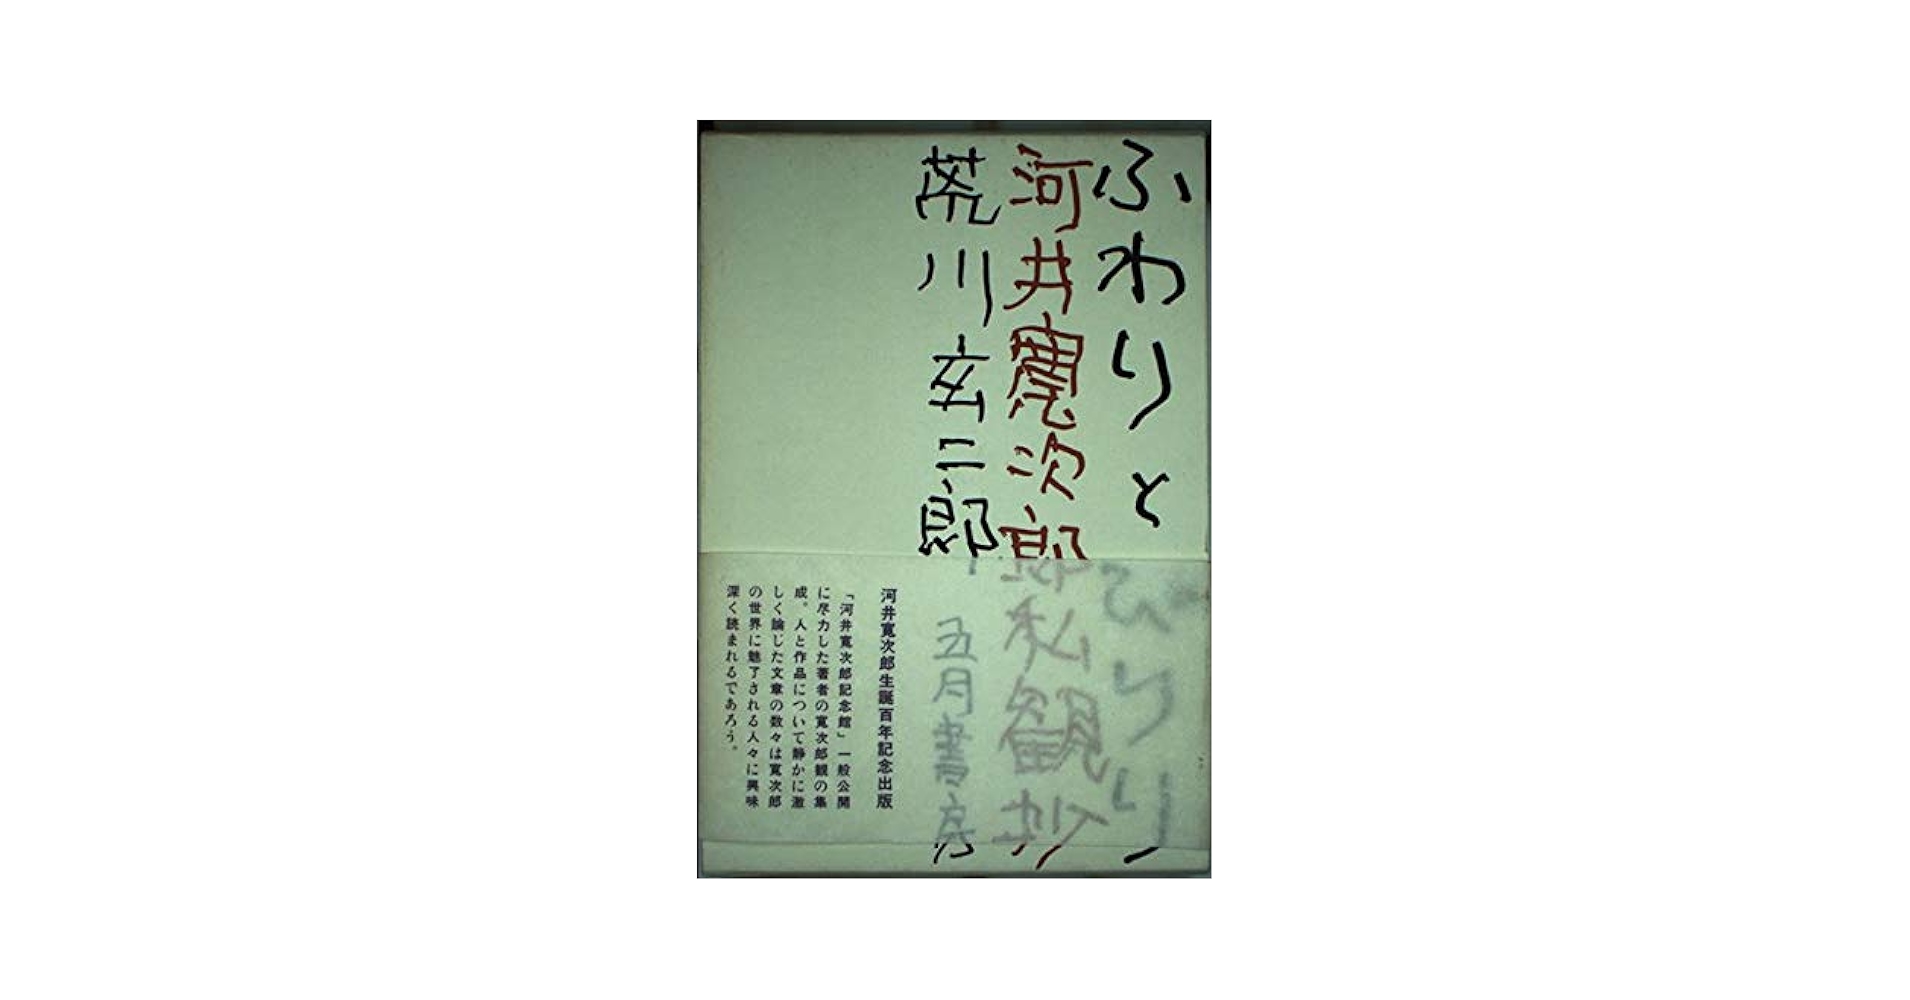 ふわりとびりり
河井寛次郎私観抄
荒川玄二郎 五月書房
河井寛次郎生誕百年記念出版
「河井寛次郎記念館」一般公開
に尽力した著者の寛次郎観の集
成。人と作品について静かに激
しく論じた文章の数々は寛次郎
の世界に魅了される人々に興味
深く読まれるであろう。